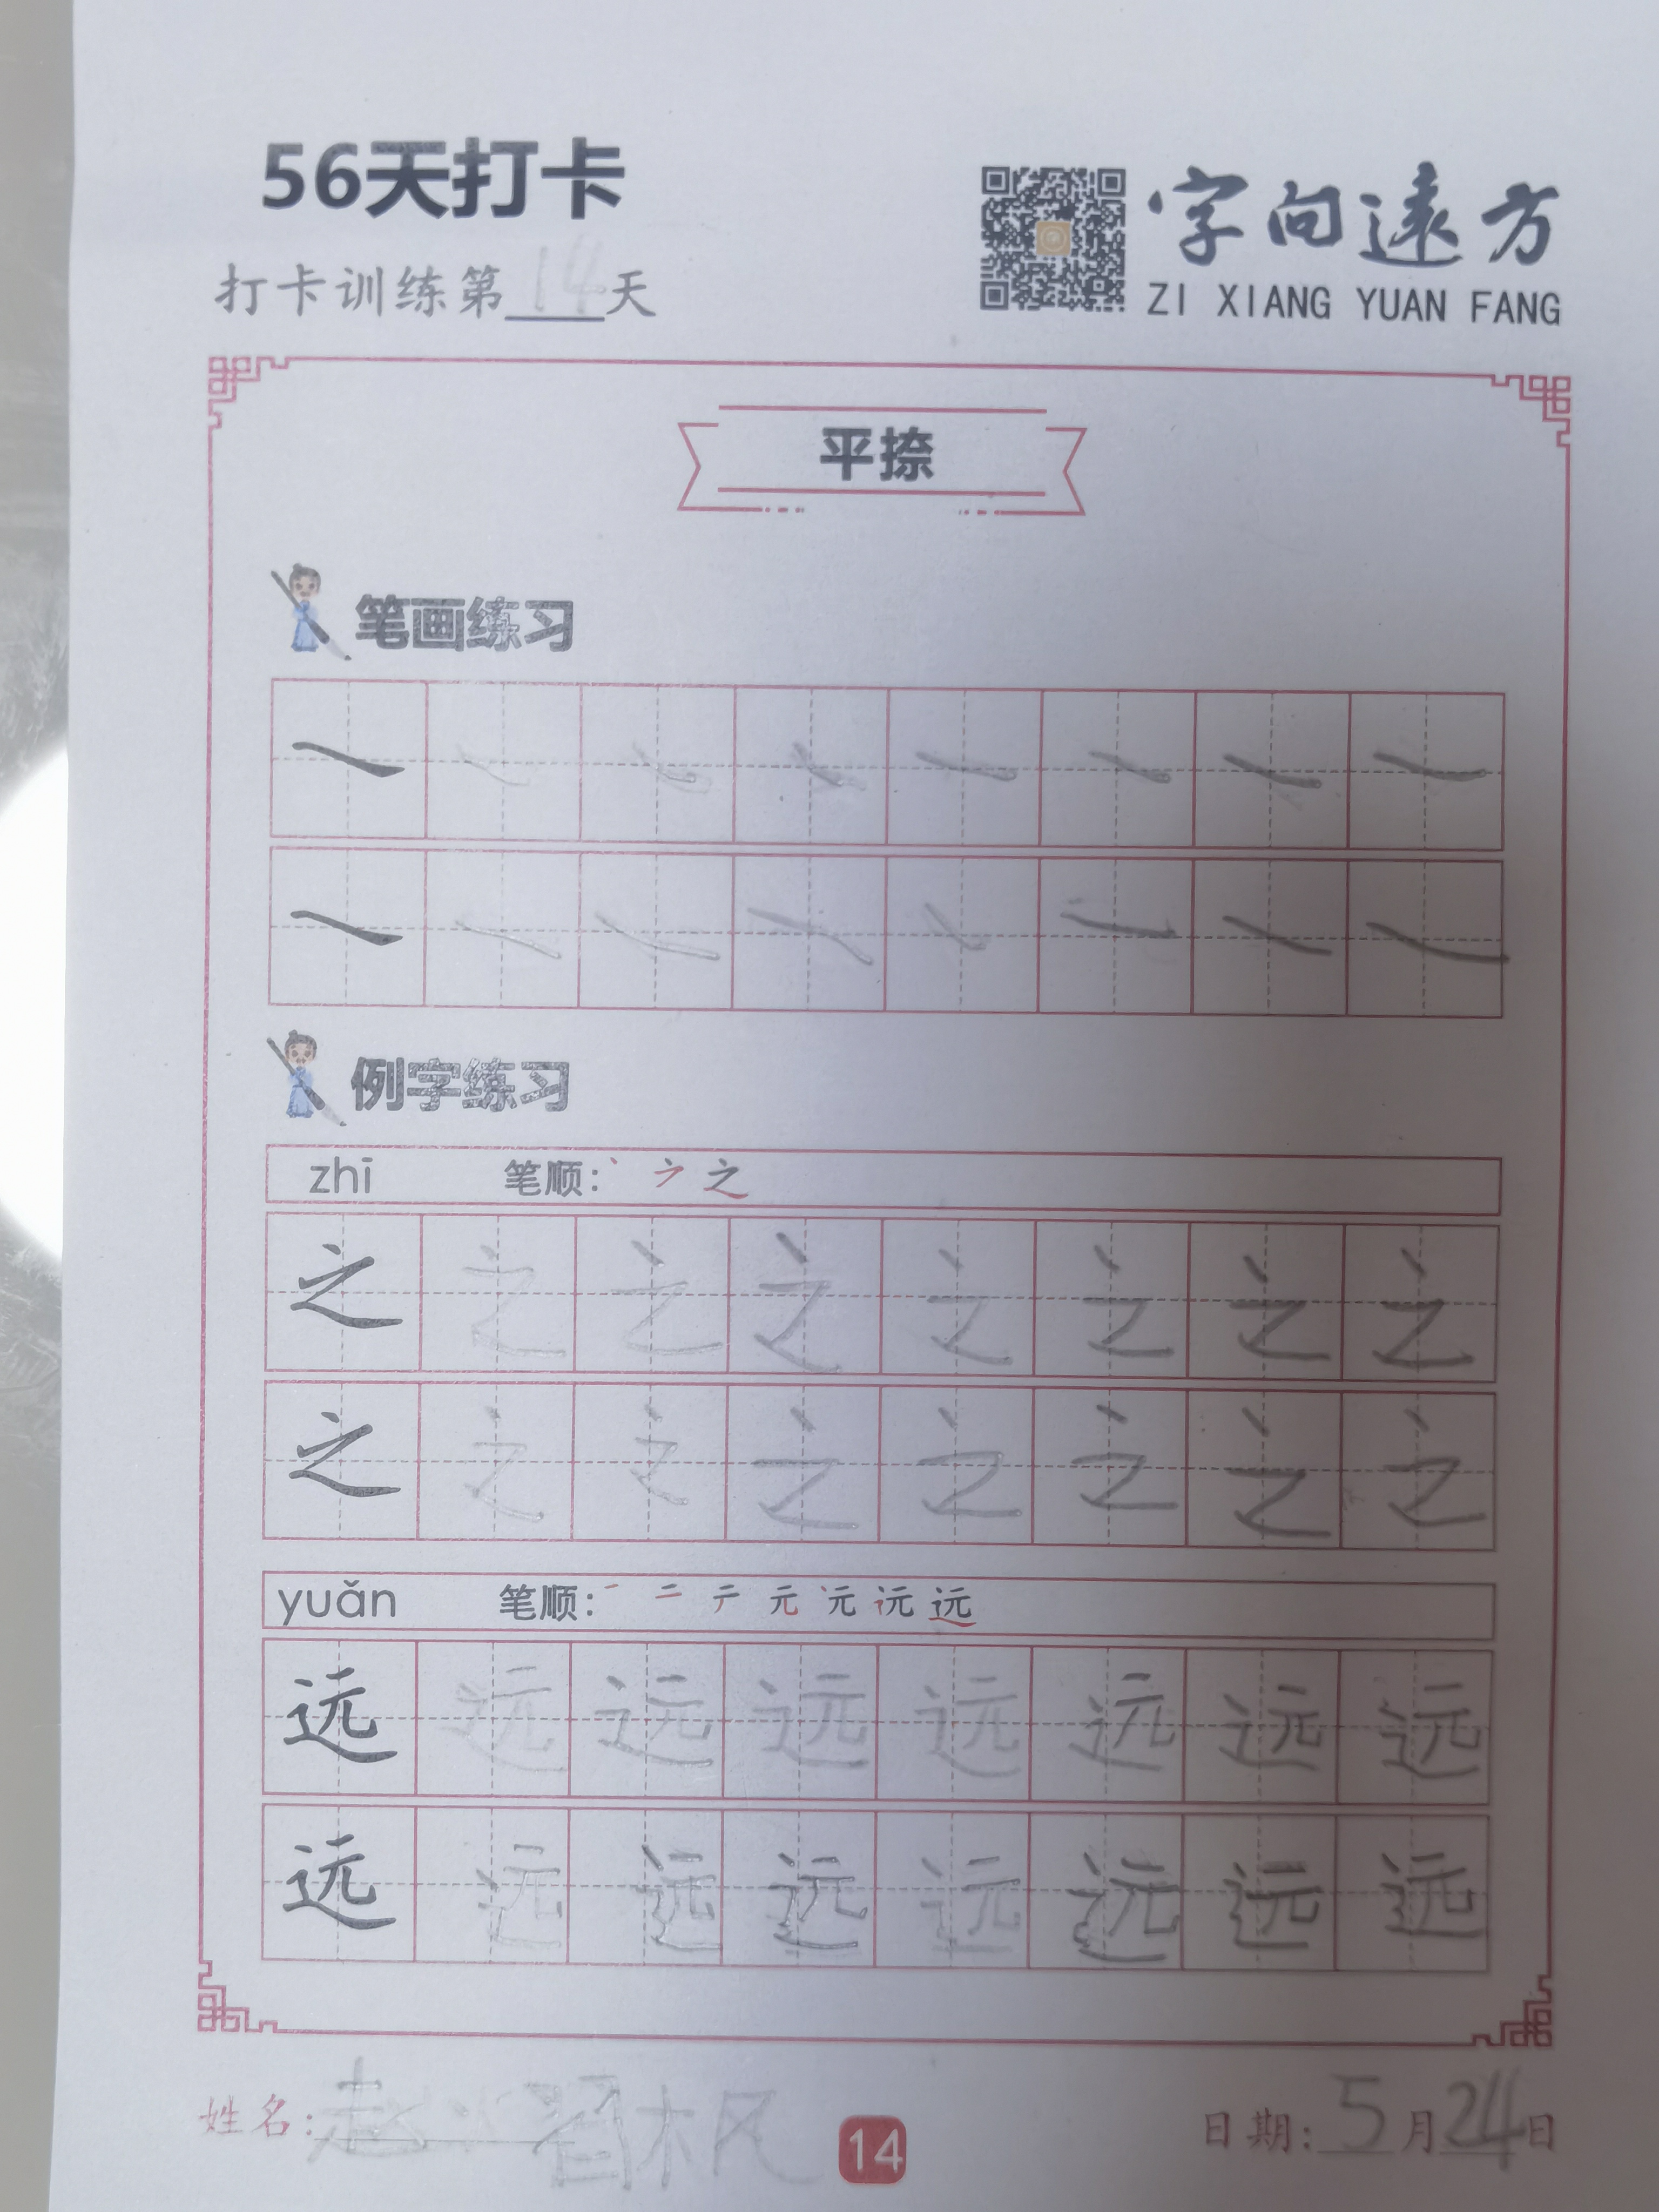 56天打卡
字向遠方
打卡训练第14天
ZI XIANG YUAN FANG
平捺
笔画练习
例字练习
zhī 笔顺: 丶 之
之 之 之 之 之 之 之 之
之 之 之 之 之 之 之 之
yuǎn 笔顺: 一 二 テ 元 远
远 远 远 远 远 远 远 远
远 远 远 远 远 远 远 远
姓名: 赵 枫
14
日期: 5月24日